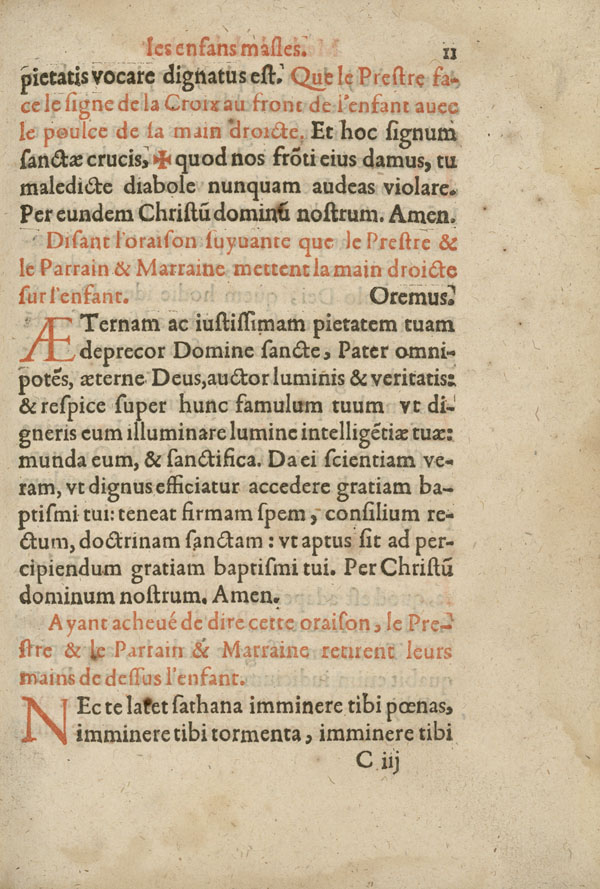 les enfans masles. 11
pietatis vocare dignatus est. Que le Prestre fa-
ce le signe de la Croix au front de l'enfant auec
le poulce de sa main droicte. Et hoc signum
sanctæ crucis, ✠ quod nos frõti eius damus, tu
maledicte diabole nunquam audeas violare.
Per eundem Christũ dominũ nostrum. Amen.
Disant l'oraison suyuante que le Prestre &
le Parrain & Marraine mettent la main droicte
sur l'enfant. Oremus.
ÆTernam ac iustissimam pietatem tuam
deprecor Domine sancte, Pater omni-
potẽs, æterne Deus, auctor luminis & veritatis:
& respice super hunc famulum tuum vt di-
gneris eum illuminare lumine intelligẽtiæ tuæ:
munda eum, & sanctifica. Da ei scientiam ve-
ram, vt dignus efficiatur accedere gratiam ba-
ptismi tui: teneat firmam spem, consilium re-
ctum, doctrinam sanctam: vt aptus sit ad per-
cipiendum gratiam baptismi tui. Per Christũ
dominum nostrum. Amen.
Ayant acheué de dire cette oraison, le Pre-
stre & le Parrain & Marraine retirent leurs
mains de dessus l'enfant.
NEc te latet sathana imminere tibi pœnas,
imminere tibi tormenta, imminere tibi
C iij